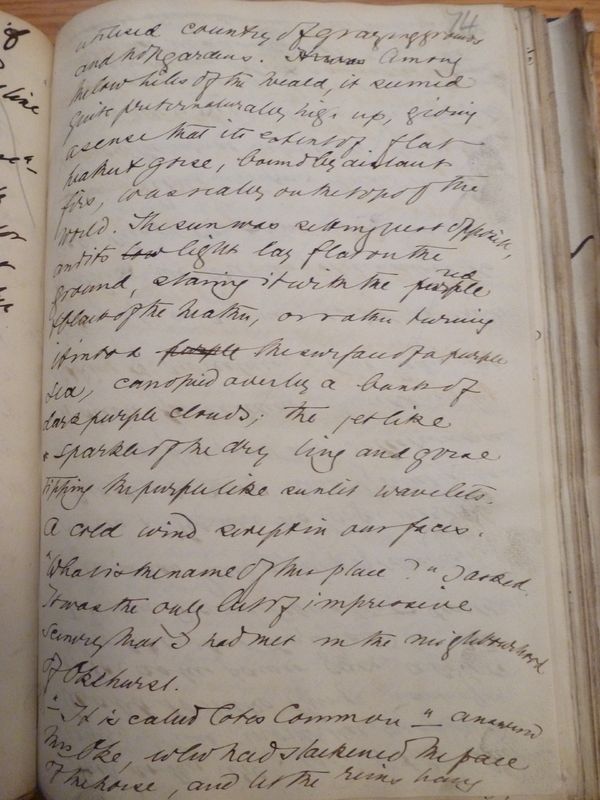 74
utilised country of grazing grounds
and hopgardens. It was Among
the low hills of the weald, it seemed
quite preternaturally high up, giving
a sense that its extent of flat
heather & gorse, bound by distant
firs, was really on the top of the
world. The sun was setting just opposite,
and its low light lay flat on the
ground, staining it with the purple red
& black of the heather, or rather turning
it into a purple the surface of a purple
sea, canopied over by a bank of
dark purple clouds; the jetlike
sparkle of the dry ling and gorse
tipping the purple like sunlit wavelets.
A cold wind swept in our faces.
"What is the name of this place?" I asked.
It was the only bit of impressive
scenery that I had met in the neighbourhood
of Okehurst.
"It is called Cotes Common" answered
Mrs Oke, who had slackened the pace
of the horse, and let the reins hang